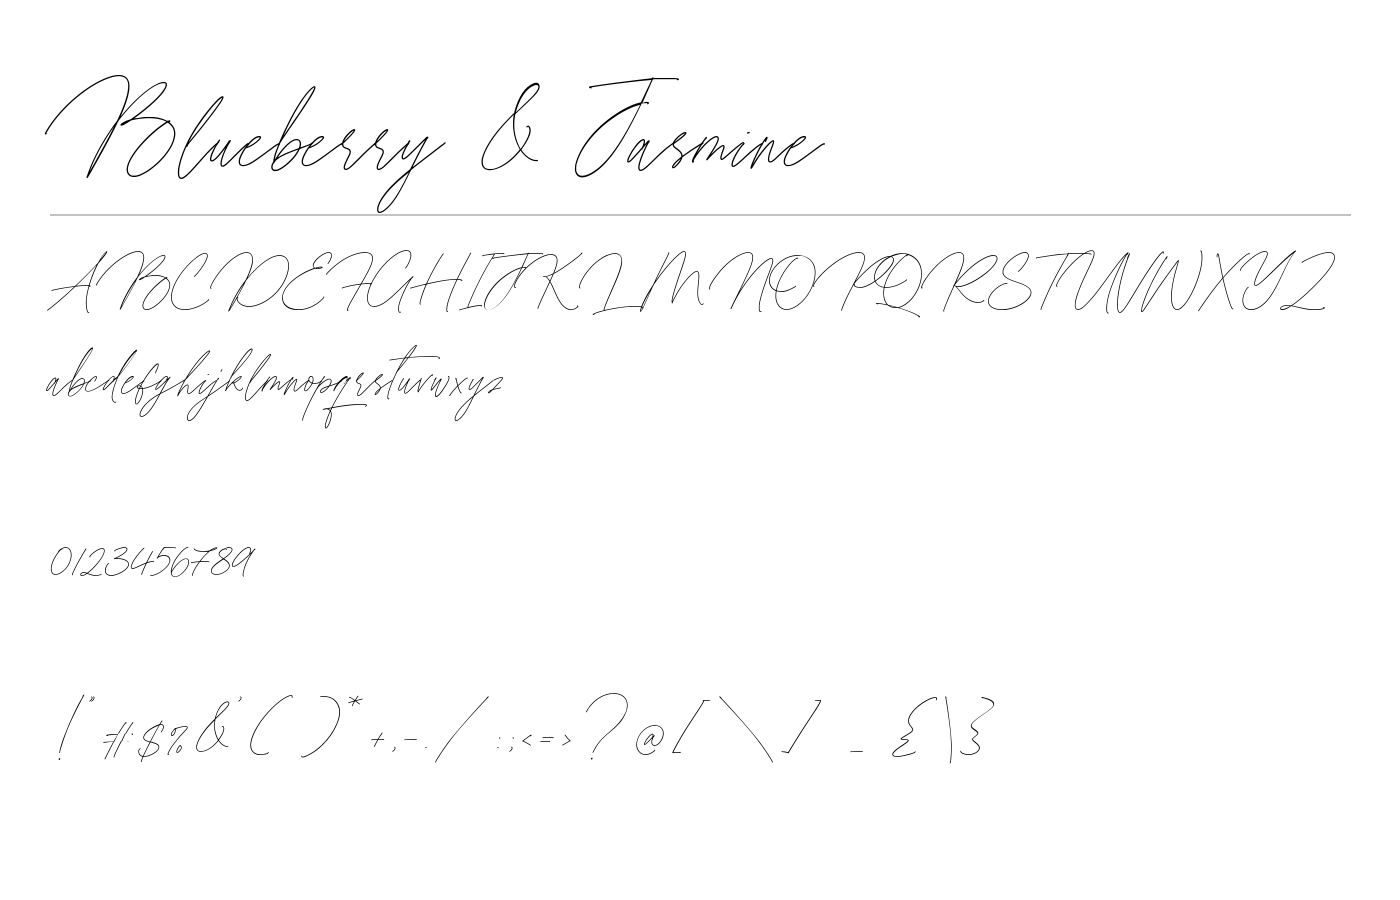 Blueberry & Jasmine
ABCDEFGHIJKLMNOPQRSTUVWXYZ
abcdefghijklmnopqrstuvwxyz
0123456789
!"#$%&'()*+,-./:;<=>?@[\]_{|}